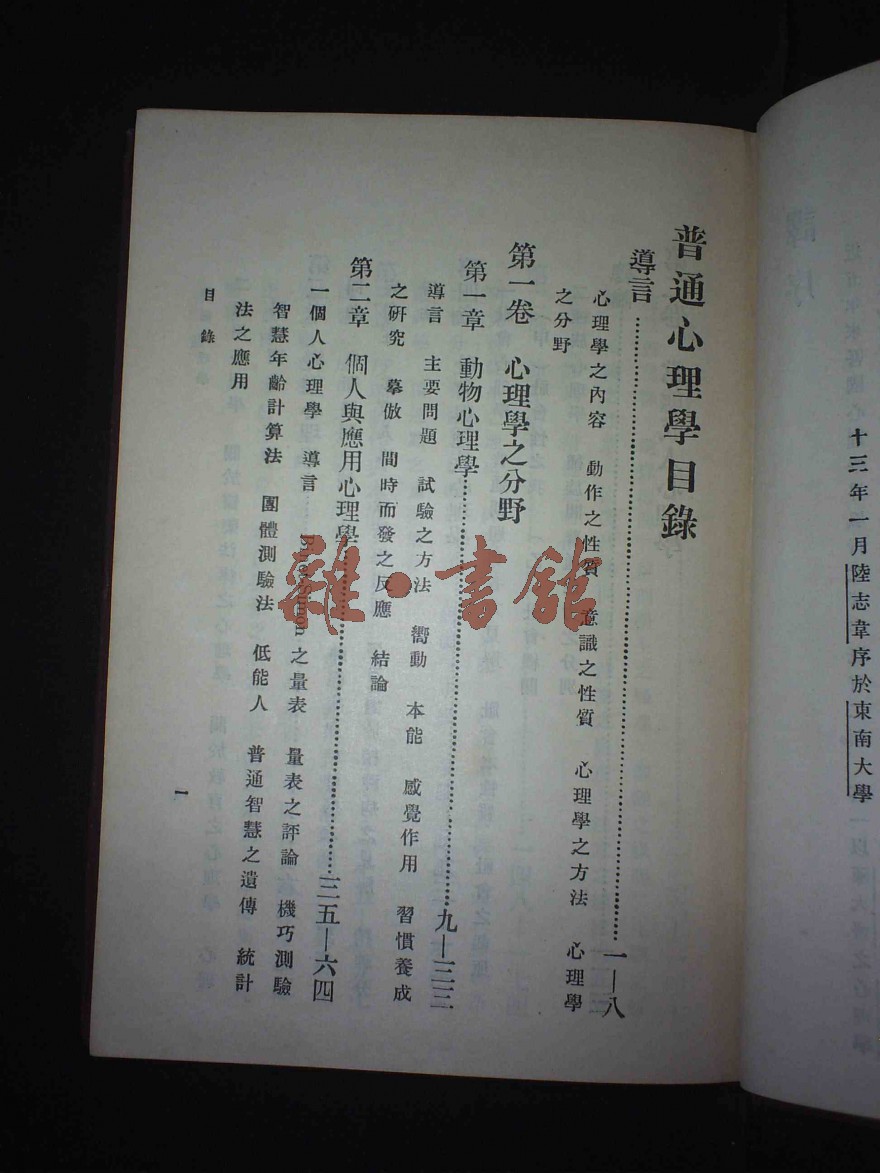 十三年一月陸志韋序於東南大學
普通心理學目錄
導言……一—八
心理學之內容　動作之性質　意識之性質　心理學之方法　心理學
之分野
第一卷　心理學之分野
第一章　動物心理學……九—三三
導言　主要問題　試驗之方法　嚮動　本能　感覺作用　習慣養成
之研究　摹倣　間時而發之反應　結論
第二章　個人與應用心理學……三五—六四
一個人心理學　導言　Binet-Simon 之量表　量表之評論　機巧測驗
智慧年齡計算法　團體測驗法　低能人　普通智慧之遺傳　統計
法之應用
目錄
一
雜·書館